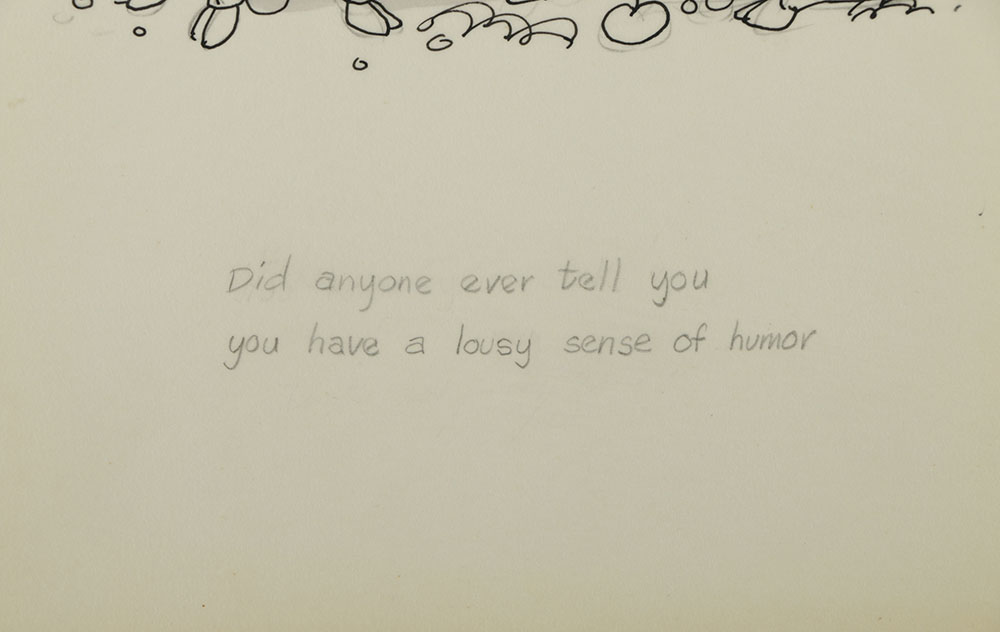 Did anyone ever tell you
you have a lousy sense of humor